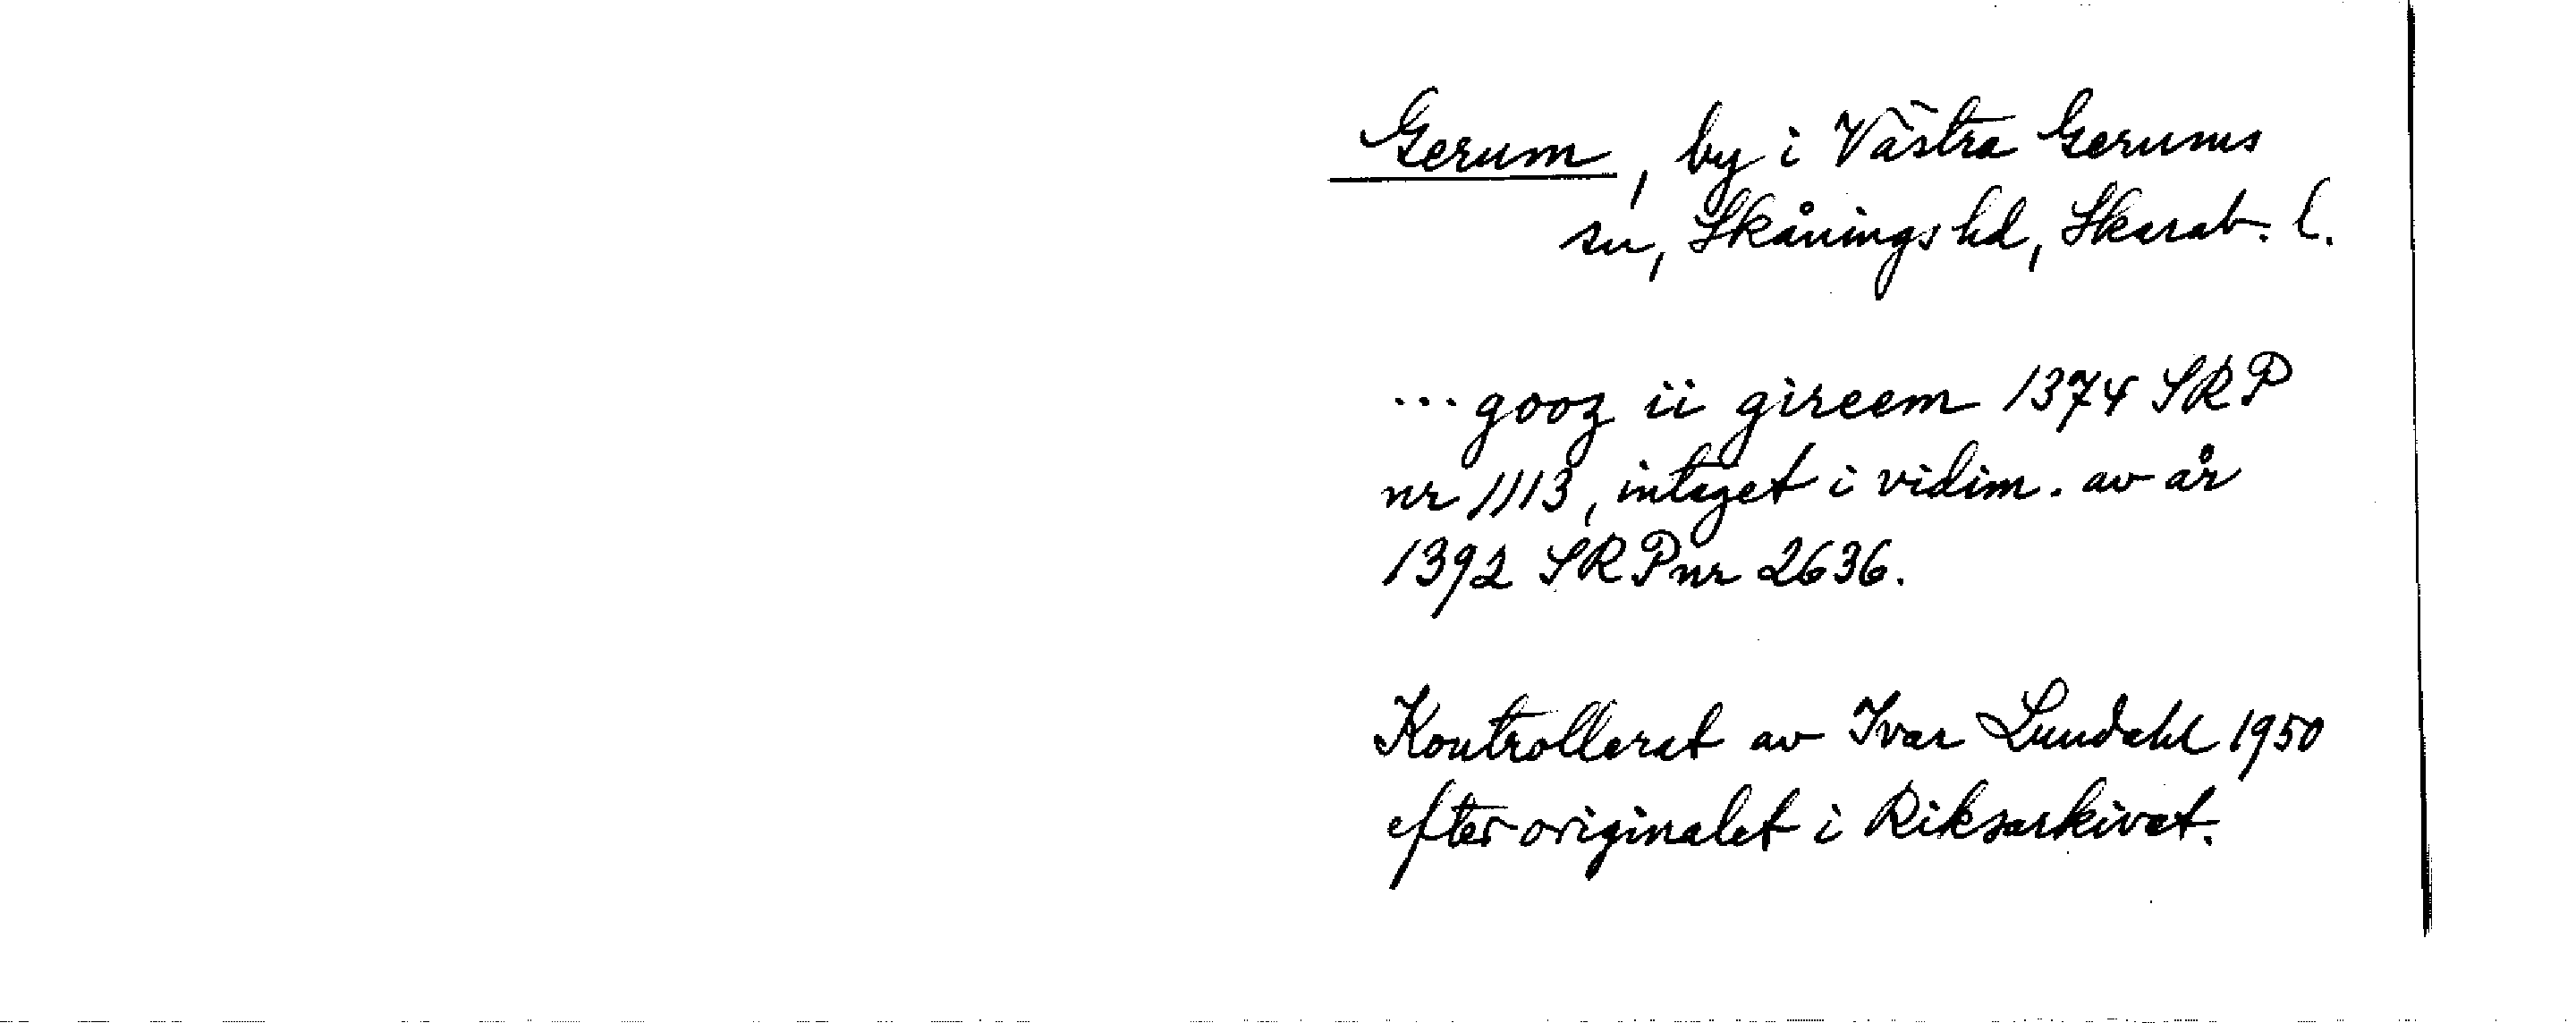 Gerum, by i Västra Gerums
sn, Skånings hd, Skarab. l.
... gooz ii gireem 1374 SRP
nr 1113, intaget i vidim. av år
1392 SRP nr 2636.
Kontrollerat av Ivar Lundahl 1950
efter originalet i Riksarkivet.